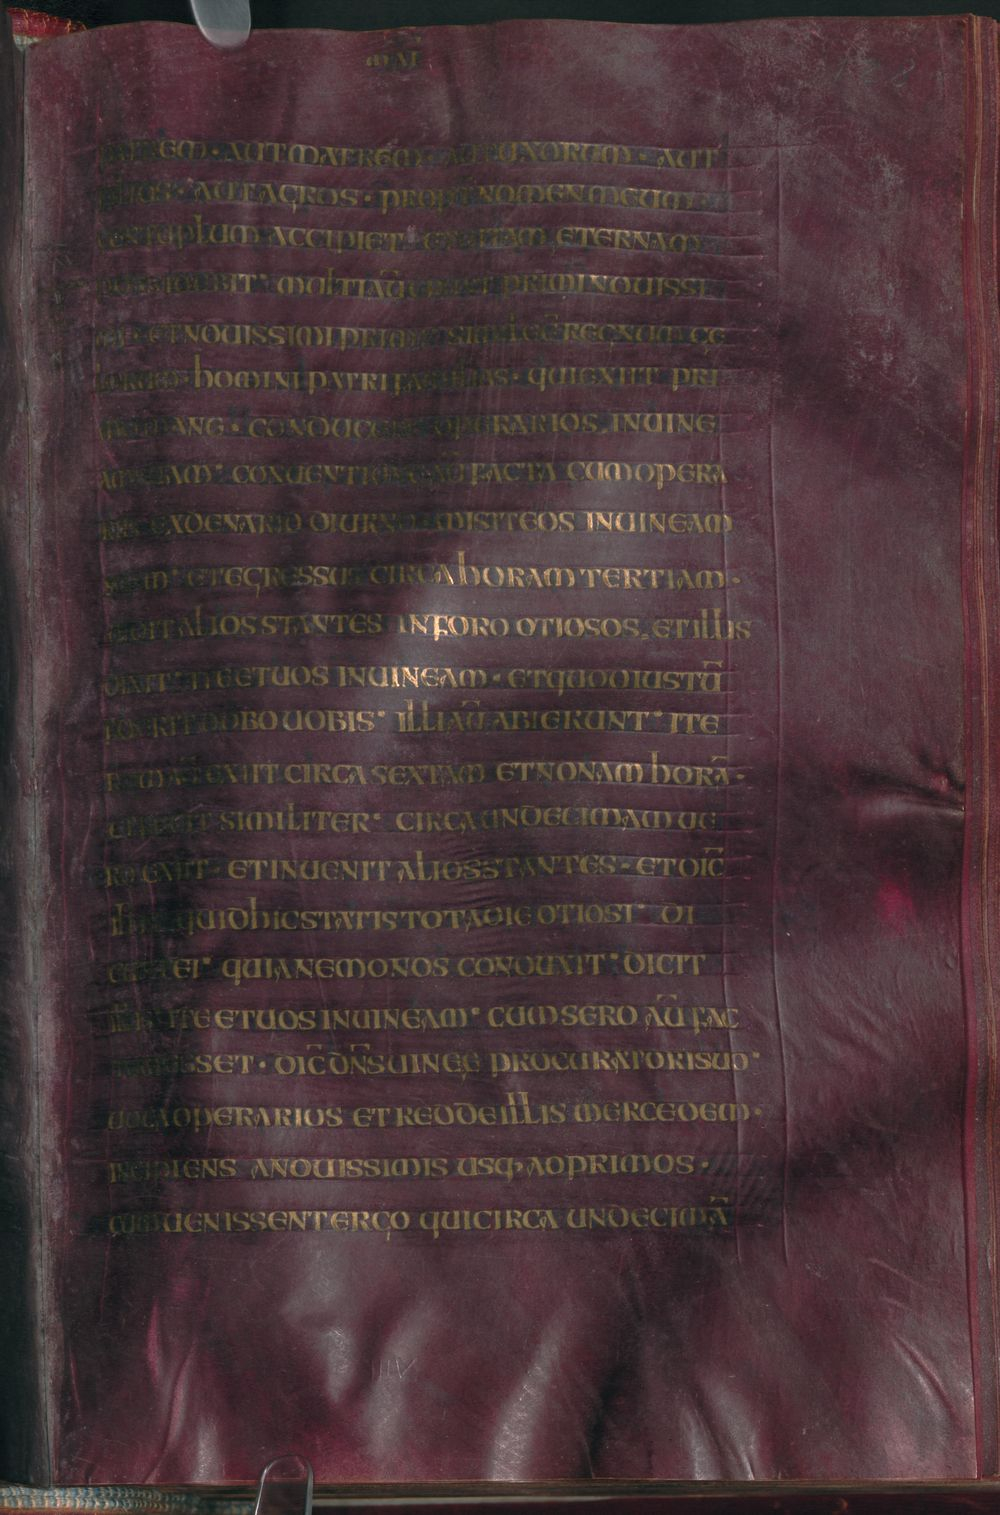 MAT
PATREM · AUTMATREM · AUTUXOREM · AUT
FILIOS · AUTAGROS · PROPT̄NOMENMEUM
CENTUPLUM ACCIPIET · ETUITAM ETERNAM
POSSIDEBIT · MULTIAŪERUNT PRIMINOUISSI
MI · ETNOUISSIMIPRIMI · SIMILEĒREGNUMCE
LORUM HOMINI PATRIFAMILIAS · QUIEXIIT PRI
MOMANE · CONDUCERE OPERARIOS, INUINE
AMSUAM · CONUENTIONEAŪ FACTA CUMOPERA
RIIS EXDENARIO DIURNO · MISITEOS INUINEAM
SUAM · ETEGRESSUS CIRCAHORAMTERTIAM ·
UIDITALIOSSTANTES INFORO OTIOSOS, ETILLIS
DIXIT · ITEETUOS INUINEAM · ETQUODIUSTŪ
FUERITDABOUOBIS · ILLIAŪABIERUNT · ITE
RUMAŪEXIIT CIRCA SEXTAM ETNONAM HORĀ ·
ETFECIT SIMILITER · CIRCAUNDECIMAMUE
RO EXIIT · ETINUENIT ALIOSSTANTES · ETDIC̄
ILLIS · QUIDHICSTATISTOTADIEOTIOSI · DI
CUNTEI · QUIANEMONOS CONDUXIT · DICIT
ILLIS · ITEETUOSINUINEAM · CUMSERO AŪ FAC
TUMESSET · DIC̄ DN̄SUINEĘ PROCURATORISUO ·
UOCAOPERARIOS ETREDDEILLIS MERCEDEM ·
INCIPIENS ANOUISSIMIS USQ· ADPRIMOS ·
CUMUENISSENTERGO QUICIRCA UNDECIMĀ